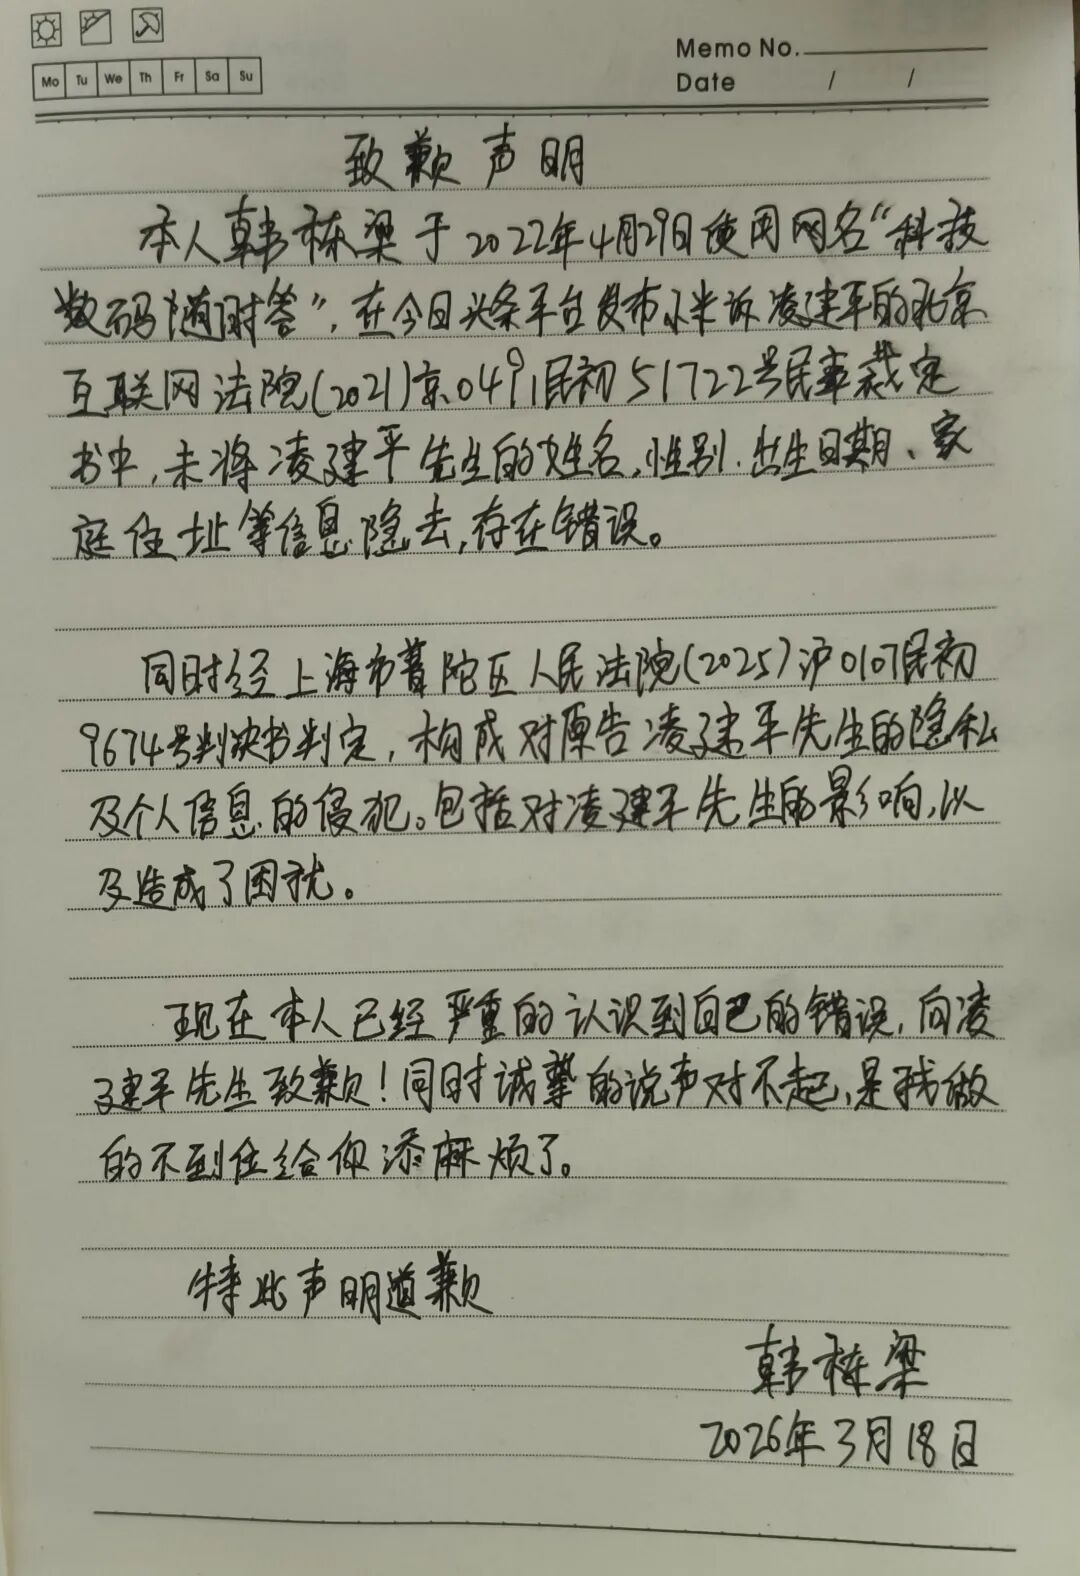 Memo No.
Mo Tu We Th Fr Sa Su
Date / /
致歉声明
本人韩栋梁于2022年4月29日使用网名“科技
数码随时答”,在今日头条平台发布小米诉凌建平的北京
互联网法院(2021)京0491民初51722号民事裁定
书中,未将凌建平先生的姓名,性别.出生日期、家
庭住址等信息隐去,存在错误。
同时经上海市普陀区人民法院(2025)沪0107民初
9674号判决书判定,构成对原告凌建平先生的隐私
及个人信息的侵犯。包括对凌建平先生的影响,以
及造成了困扰。
现在本人已经严重的认识到自己的错误,向凌
建平先生致歉!同时诚挚的说声对不起,是我做
的不到位给你添麻烦了。
特此声明道歉
韩栋梁
2026年3月18日